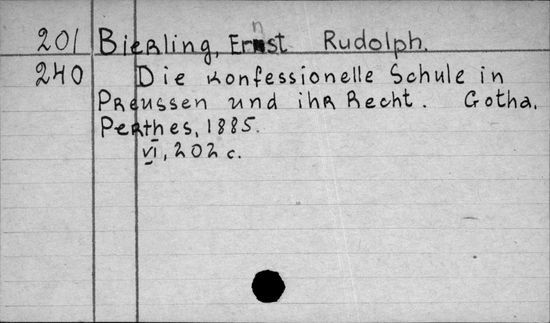 201 Bierling, Ernst Rudolph.
240 Die konfessionelle Schule in
Preussen und ihr Recht. Gotha,
Perthes, 1885.
VI, 202 c.